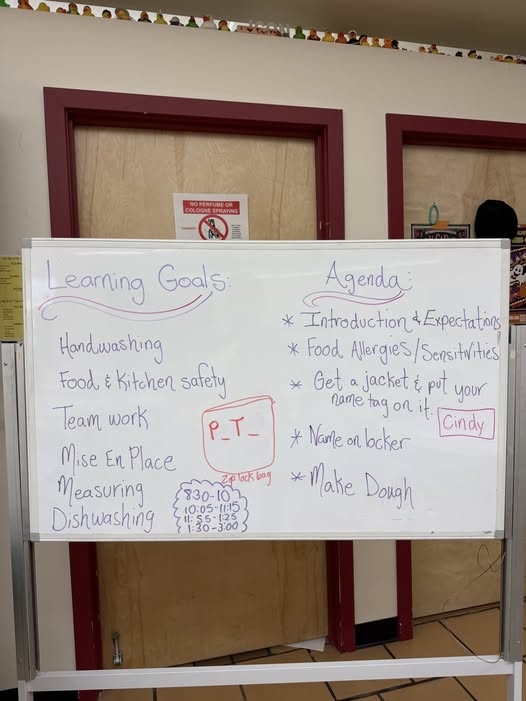 NO PERFUME OR
COLOGNE SPRAYING
Learning Goals:
Handwashing
Food & Kitchen safety
Team work
Mise En Place
Measuring
Dishwashing
P_T_
Zip lock bag
8:30-10
10:05-11:15
11:55-1:25
1:30-3:00
Agenda:
* Introduction & Expectations
* Food Allergies/Sensitivities
* Get a jacket & put your
name tag on it.
Cindy
* Name on locker
* Make Dough